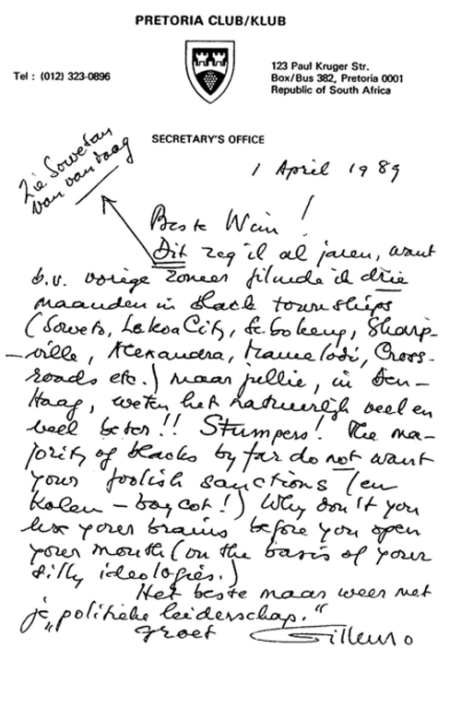 PRETORIA CLUB/KLUB
Tel : (012) 323-0896
123 Paul Kruger Str.
Box/Bus 382, Pretoria 0001
Republic of South Africa
SECRETARY'S OFFICE
Zie Sowetan
van vandaag
1 April 1989
Beste Wim!
Dit zeg ik al jaren, want
b.v. vorige zomer filmde ik drie
maanden in black townships
(Soweto, Lekoa City, Sebokeng, Sharp-
-ville, Alexandra, Mamelodi, Cross-
roads etc.) maar jullie, in Den-
Haag, weten het natuurlijk veel en
veel beter!! Stumpers! The ma-
jority of blacks by far do not want
your foolish sanctions (en
Kolen-boycot!) Why don't you
use your brains before you open
your mouth (on the basis of your
silly ideologies.)
Het beste maar weer met
je „politieke leiderschap."
groet